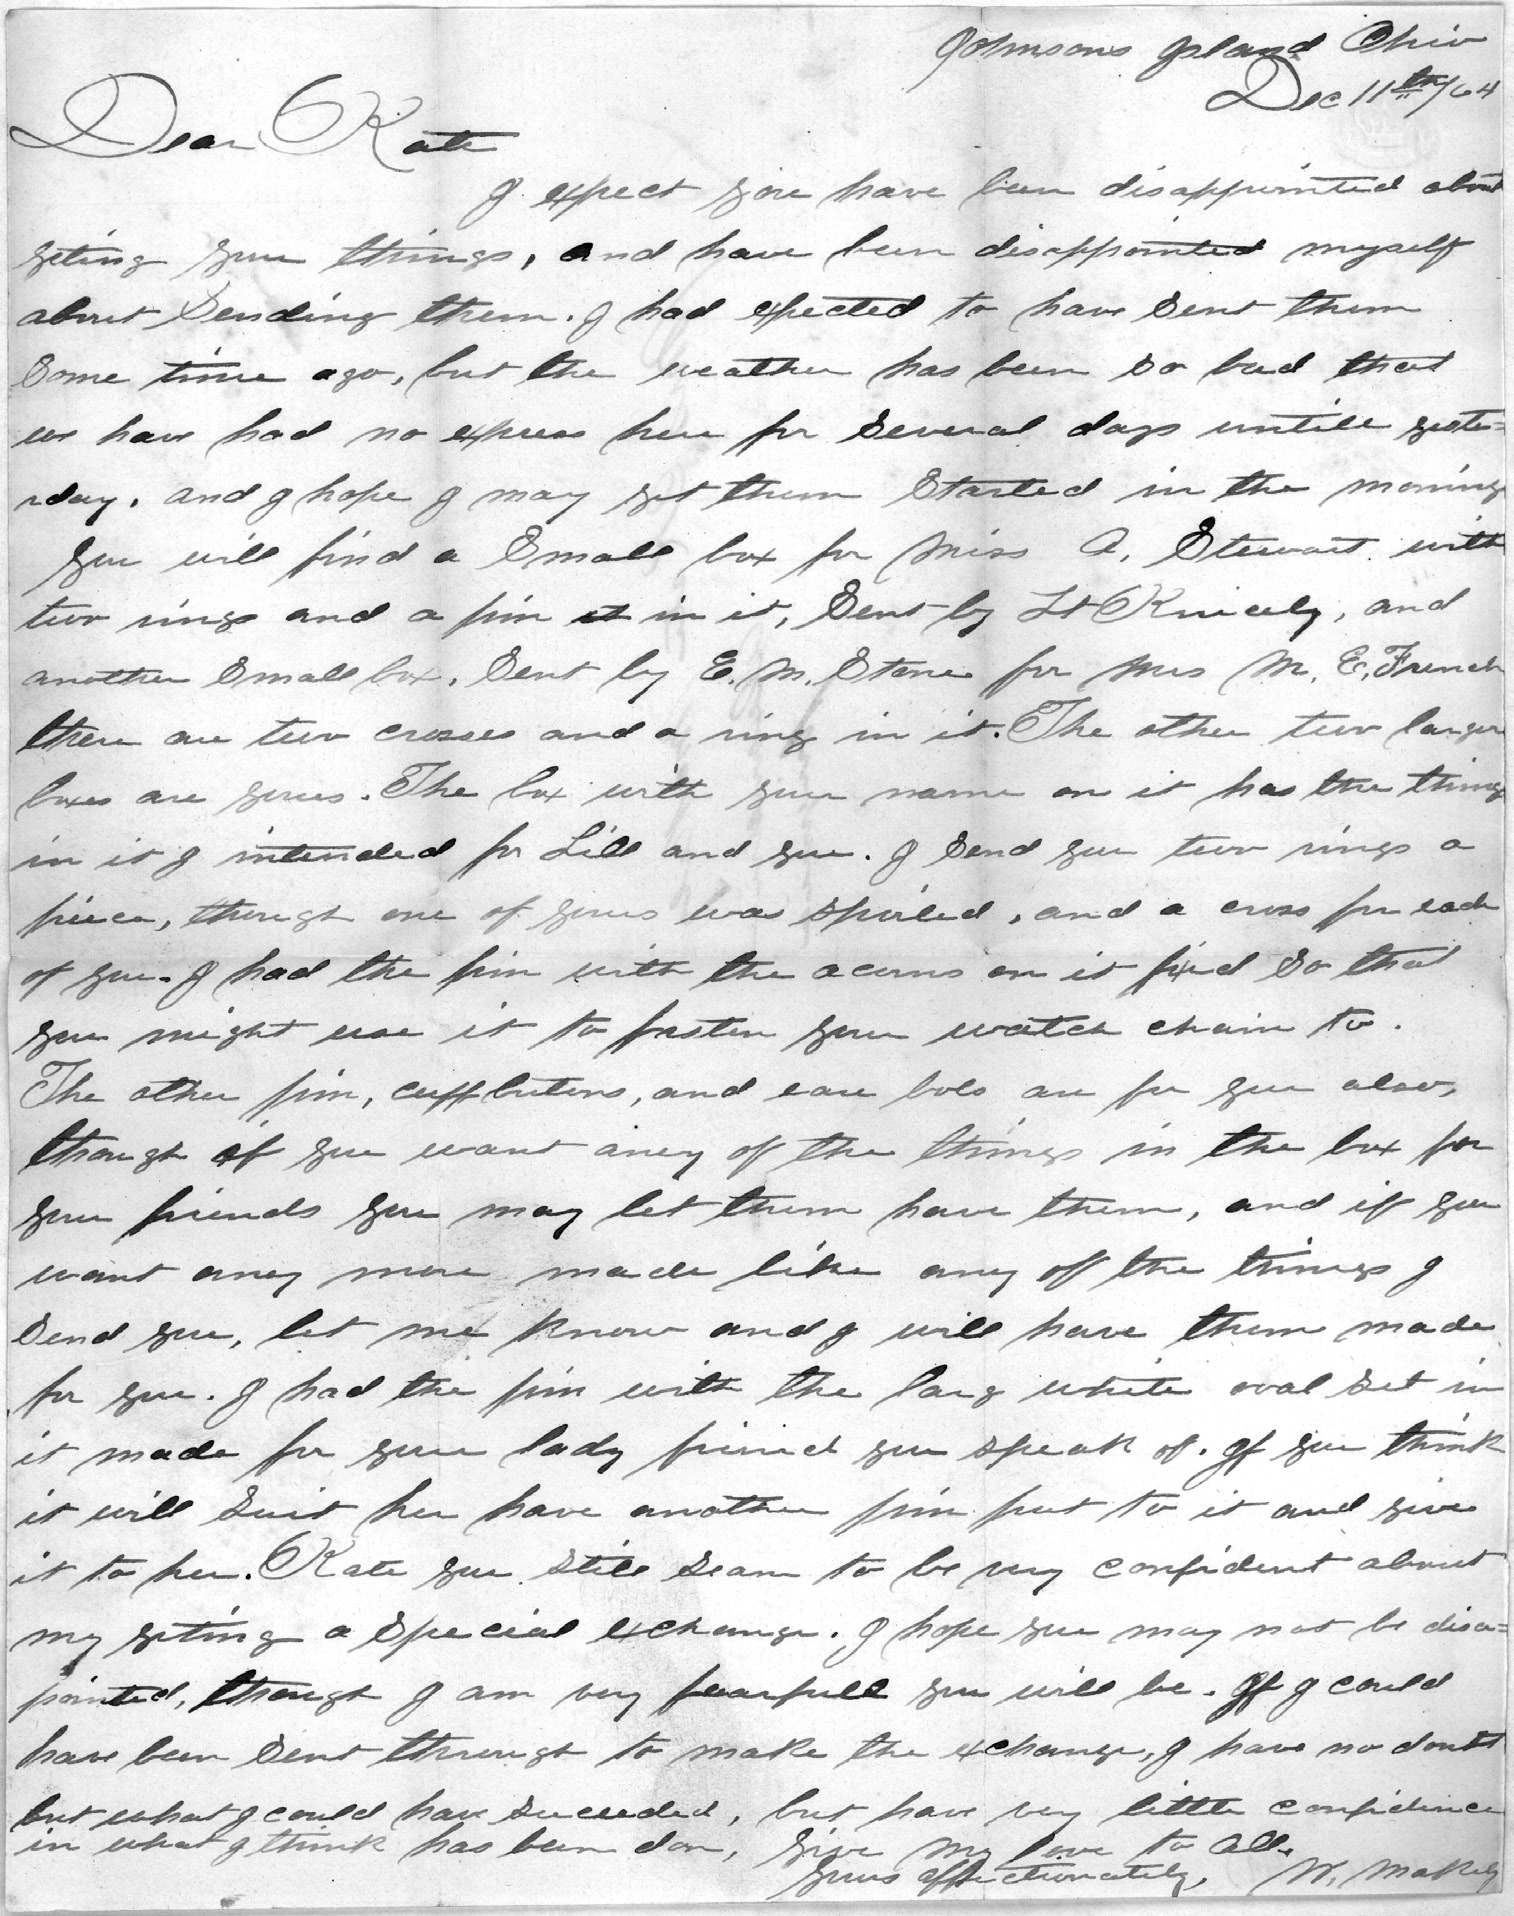 Johnsons Island Ohio
Dec 11th/64
Dear Kate
I expect you have been disappointed about
geting your things, and have been disappointed myself
about Sending them. I had expected to have Sent them
Some time ago, but the weather has been so bad that
we have had no express here for Several days untill yeste=
rday. and I hope I may get them Started in the morning
you will find a Small box for Miss A. Stewart with
two rings and a pin in it, Sent by Lt Knicely, and
another Small box, Sent by E. M. Stone for Mrs M. E. French
there are two crosses and a ring in it. The other two larger
boxes are yours. The box with your name on it has the things
in it I intended for Lill and you. I Send you two rings a
piece, though one of yours was spoiled, and a cross for each
of you. I had the pin with the acorns on it fixed So that
you might use it to fasten your watch chain to.
The other pin, cuff butons, and eare bobs are for you also,
though if you want aney of the things in the box for
your friends you may let them have them, and if you
want aney more made like any off the things I
Send you, let me know and I will have them made
for you. I had the pin with the larg white oval set in
it made for your lady friend you speak of. If you think
it will Suit her have another pin put to it and give
it to her. Kate you still seam to be very confident about
my geting a Special exchange. I hope you may not be disa=
pointed, though I am very fearfull you will be. If I could
have been Sent through to make the exchange, I have no doubt
but what I could have Succeeded, but have very little confidence
in what I think has been don, give my love to all.
yours affectionately, W. Makely